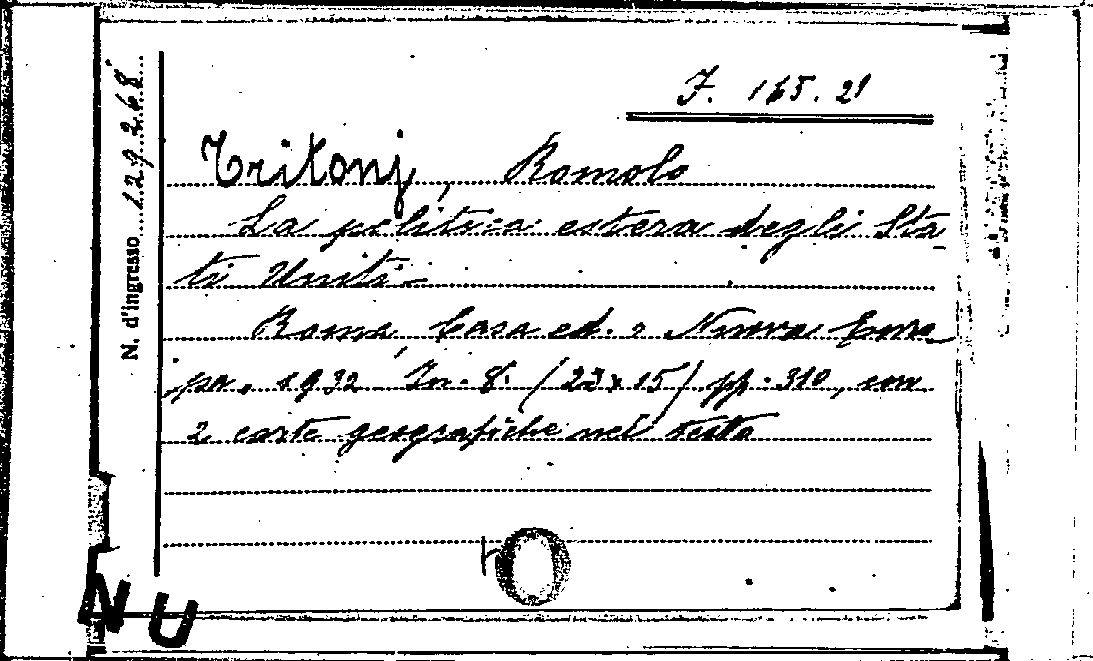 F. 165. 21
N. d'ingresso 129268
Tritonj, Romolo
La politica estera degli Sta
ti Uniti -
Roma, Casa ed. " Nuova Euro
pa. 1932 In-8. (23x15) pp. 310, con
2 carte geografiche nel testo
O
NU